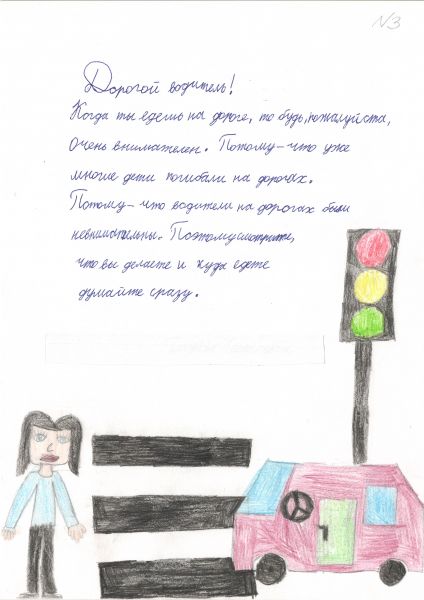 N3
Дорогой водитель!
Когда ты едешь на дороге, то будь, пожалуйста,
очень внимателен. Потому-что уже
многие дети погибали на дорогах.
Потому-что водители на дорогах были
невнимательны. Поэтому смотрите,
что вы делаете и куда едете
думайте сразу.